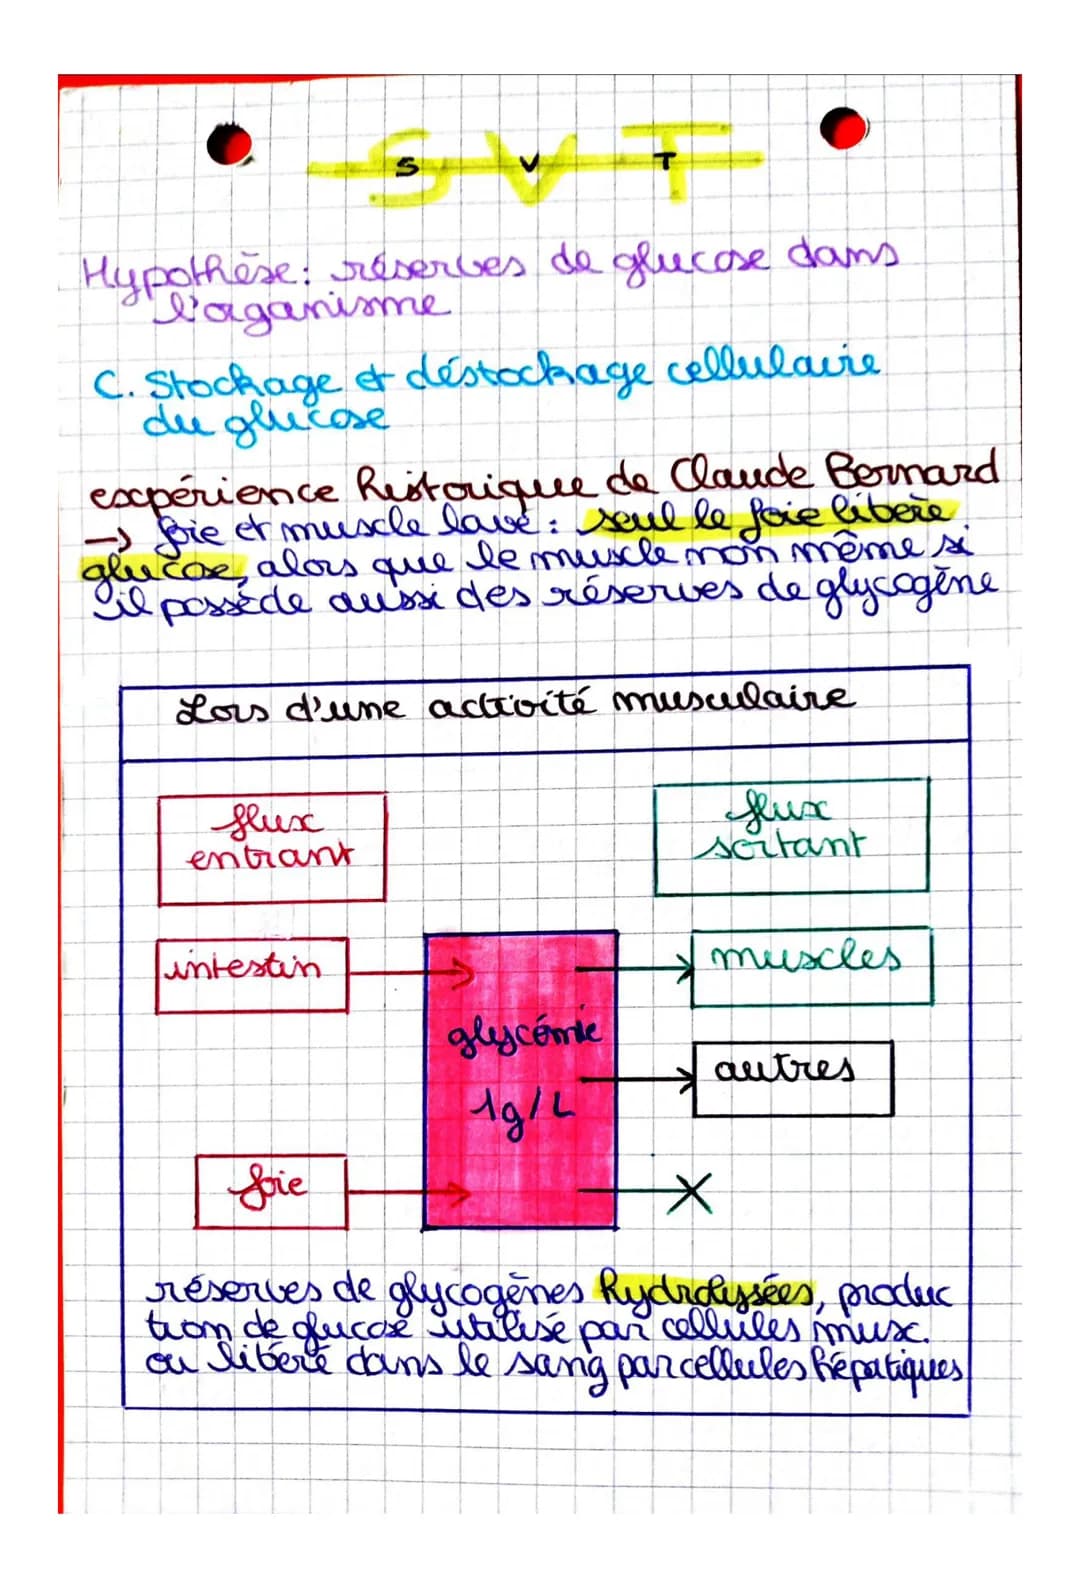 S V T
Hypothèse: réserves de glucose dans
l'organisme
C. Stockage et déstockage cellulaire
du glucose
expérience historique de Claude Bernard
→ foie et muscle lavé : seul le foie libère
glucose, alors que le muscle non même si
il possède aussi des réserves de glycogène
Lors d'une activité musculaire
flux
entrant
flux
sortant
intestin
muscles
glycémie
1g/L
autres
foie
réserves de glycogènes hydrolysées, produc
tion de glucose utilisé par cellules musc.
ou libéré dans le sang par cellules hépatiques